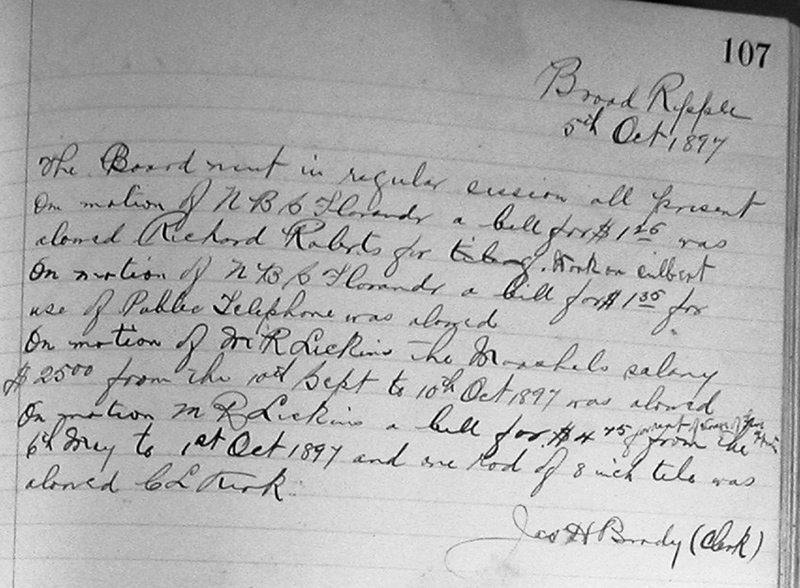 107
Broad Ripple
5th Oct 1897
The Board met in regular session all present
On motion of N B & Florandr a bill for $1 25 was
alowed Richard Roberts for tileing. Work on culbert
On motion of N B & Florandr a bill for $1 35 for
use of Public Telephone was alowed
On motion of M R Lickins The Marshels salary
$25 00 from the 10th Sept to 10th Oct 1897 was alowed
On motion M R Lickins a bill for $4 75 from the
6th May to 1st Oct 1897 and one rod of 8 inch tile was
alowed C L Kirk.
Jas H Brady (Clerk)